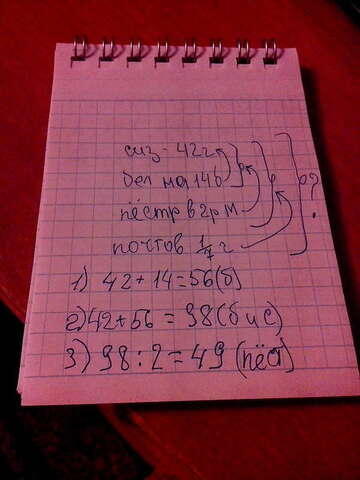 сиз - 42 г
бел на 14 б
пёстр в 2 р м
почтов 1/7 г
?
1) 42 + 14 = 56 (б)
2) 42 + 56 = 98 (б и с)
3) 98 : 2 = 49 (пёст)